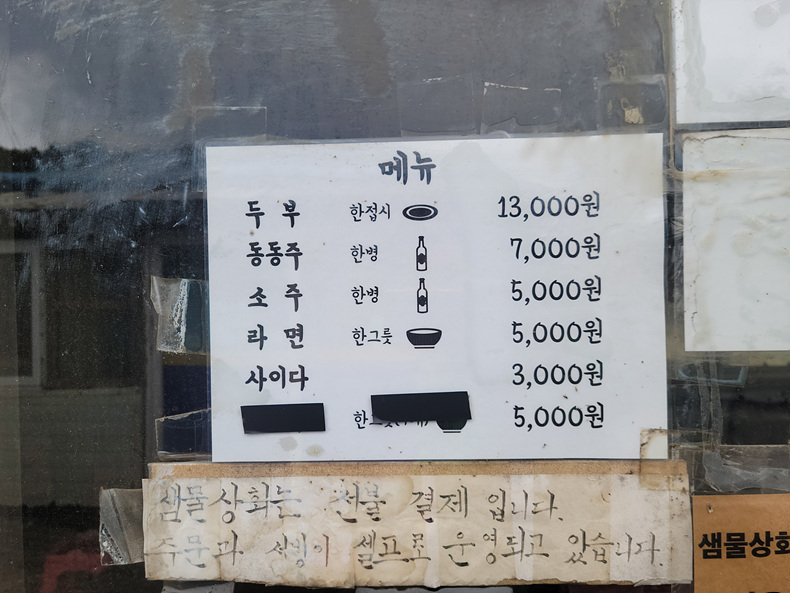 메뉴
두 부 한접시 13,000원
동동주 한병 7,000원
소 주 한병 5,000원
라 면 한그릇 5,000원
사이다 3,000원
5,000원
샘물상회는 선불 결제 입니다.
주문과 서빙이 셀프로 운영되고 있습니다.
샘물상회